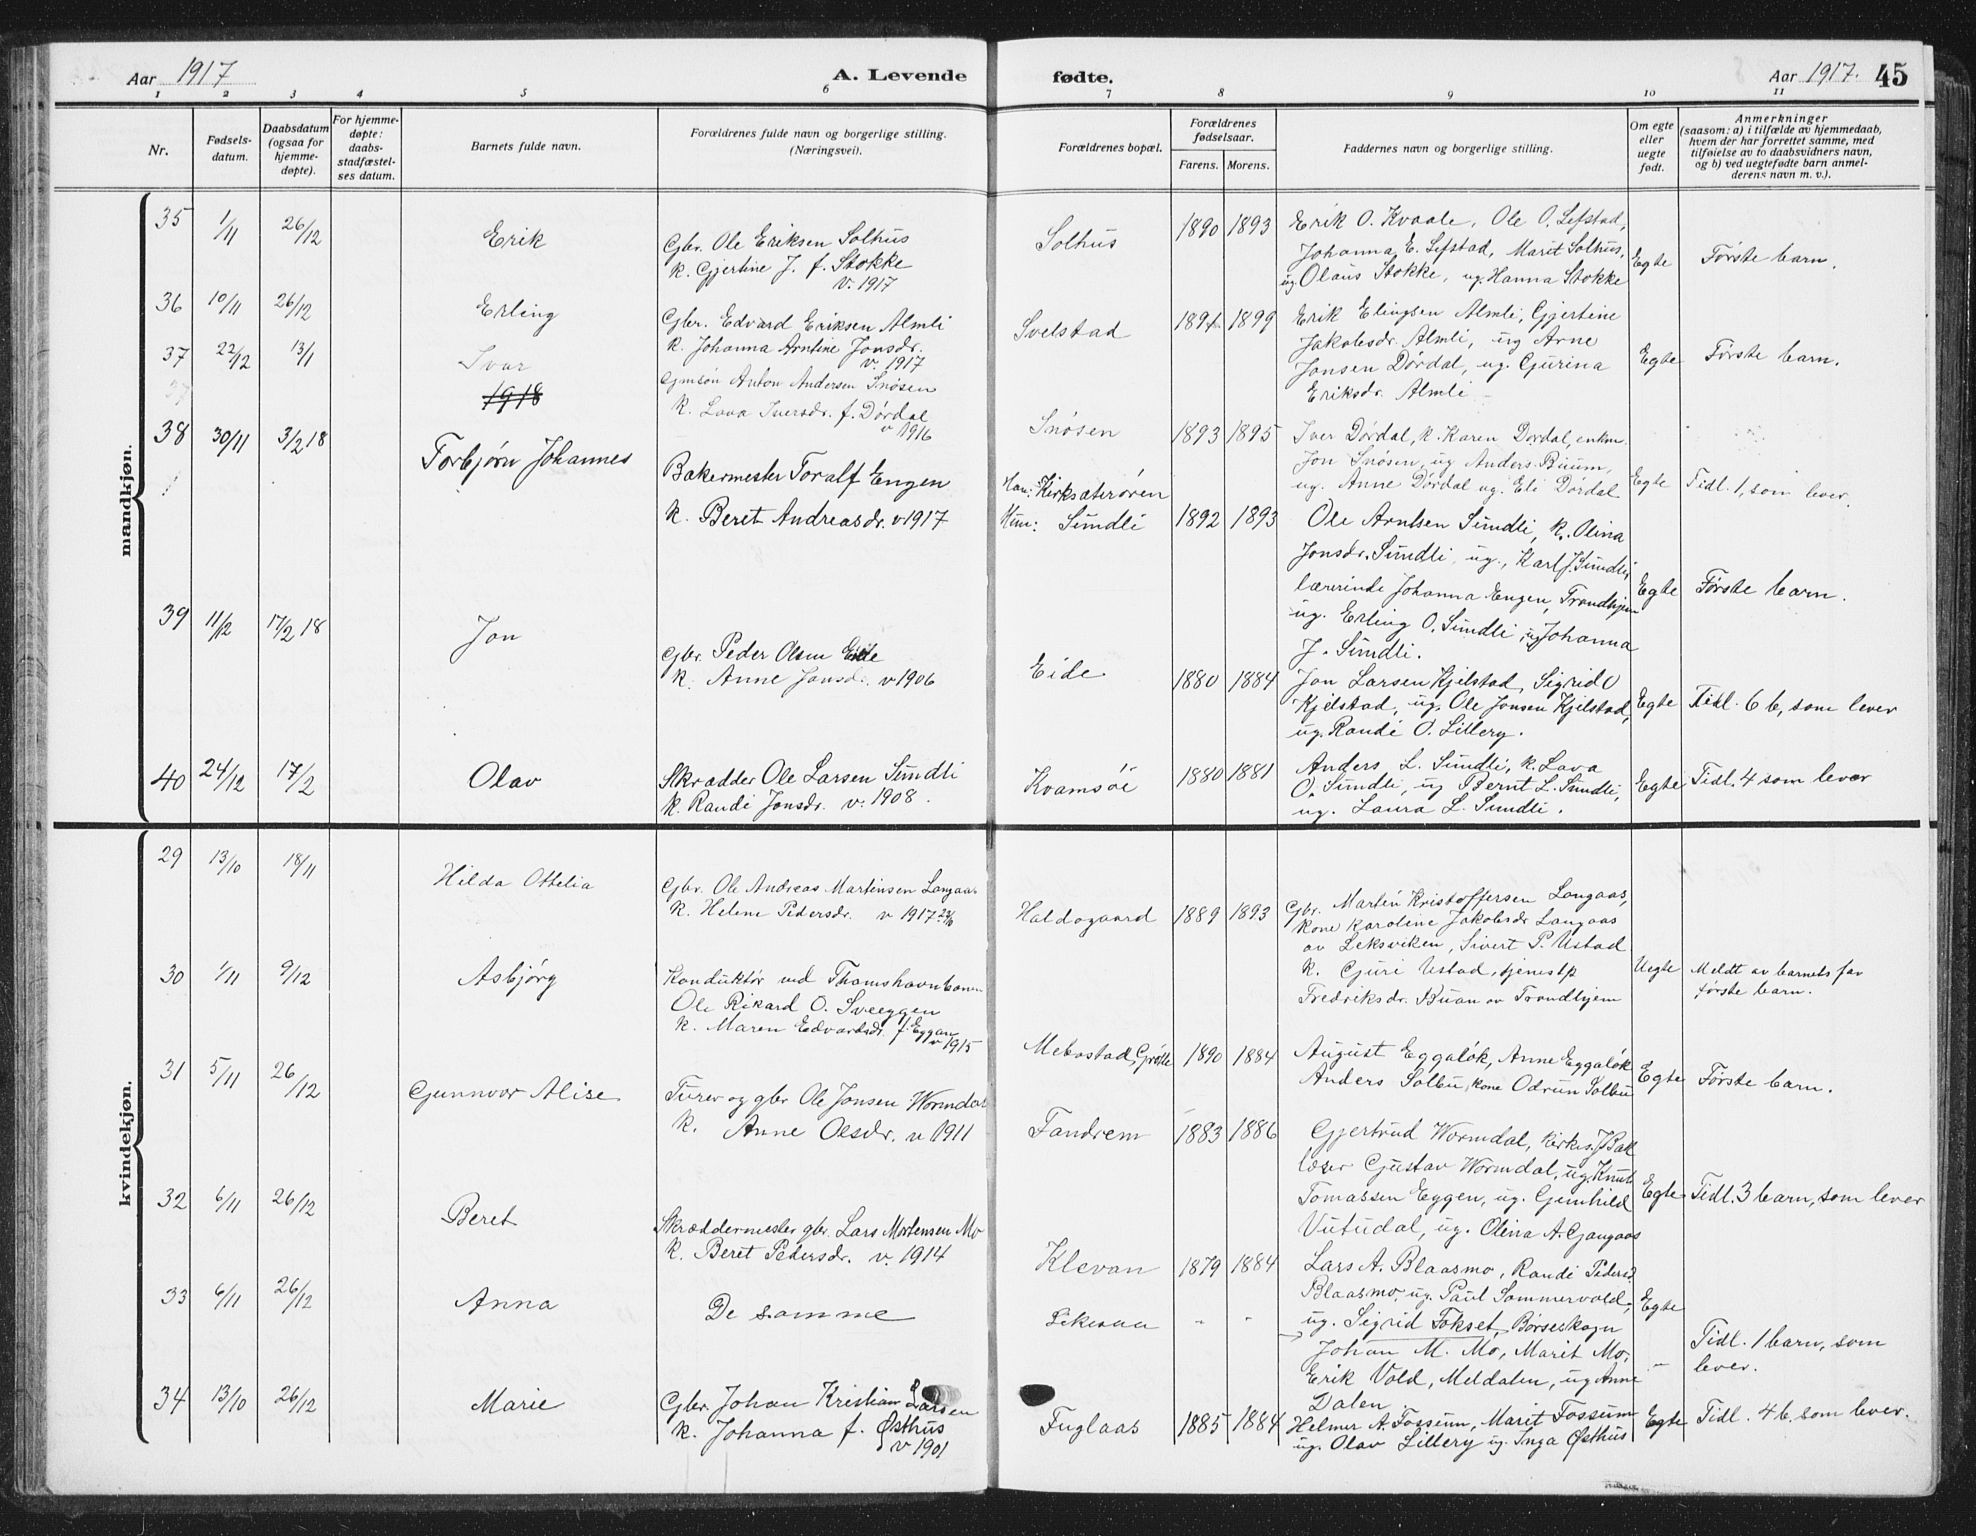 Aar 1917
A. Levende
fødte.
Aar 1917.
45
1 2 3 4 5 6 7 8 9 10 11
Nr.
Fødsels-
datum.
Daabsdatum
(ogsaa for
hjemme-
døpte).
For hjemme-
døpte:
daabs-
stadfæstel-
ses datum.
Barnets fulde navn.
Forældrenes fulde navn og borgerlige stilling.
(Næringsvei).
Forældrenes bopæl.
Forældrenes
fødselsaar.
Farens. Morens.
Faddernes navn og borgerlige stilling.
Om egte
eller
uegte
født.
Anmerkninger
(saasom: a) i tilfælde av hjemmedaab,
hvem der har forrettet samme, med
tilføielse av to daabsvidners navn,
og b) ved uegtefødte barn anmel-
derens navn m. v.).
mandkjøn.
35 1/11 26/12 Erik
Gbr. Ole Eriksen Solhus
k. Gjertine J. f. Stokke
v. 1917
Solhus 1890 1893
Erik O. Kvaale, Ole O. Lefstad,
Johanna E. Lefstad, Marit Solhus,
ug. Olaus Stokke, ug. Hanna Stokke
Egte Første barn.
36 10/11 26/12 Erling
Gbr. Edvard Eriksen Almli
k. Johanna Arntine Jonsdr.
v. 1917
Svelstad 1891 1899
Erik Elingsen Almli, Gjertine
Jakobsdr. Almli, ug Arne
Jonsen Dørdal, ug. Gjurina
Eriksdr. Almli
Egte Første barn.
37 22/12 13/1 Ivar
37
1918
Gmsøn Anton Andersen Snøsen
k. Lava Iversdr. f. Dørdal
v 1916
Snøsen 1893 1895
Iver Dørdal, k. Karen Dørdal, enkm.
Jon Snøsen, ug Anders Buum,
ug. Anne Dørdal ug. Eli Dørdal
Egte Tidl. 1, som lever.
38 30/11 3/2 18 Torbjørn Johannes
Bakermester Toralf Engen
k. Beret Andreasdr. v 1917
Han: Kirksæterøren
Hun: Sundli 1892 1893
Ole Arntsen Sundli, k. Olina
Jonsdr. Sundli, ug., Karl J. Sundli,
lærerinde Johanna Engen, Trondhjem
ug. Erling O. Sundli, ug Johanna
J. Sundli.
Egte Første barn.
39 11/12 17/2 18 Jon
Gbr. Peder Olsen Eide
k. Anne Jonsdr. v 1906
Eide 1880 1884
Jon Larsen Kjelstad, Sigrid O
Kjelstad, ug. Ole Jonsen Kjelstad,
ug. Randi O. Lillery.
Egte Tidl. 6 b, som lever
40 24/12 17/2 Olav
Skrædder Ole Larsen Sundli
k. Randi Jonsdr. v. 1908.
Kvamsøi 1880 1881
Anders L. Sundli, k. Lava
O. Sundli, ug Bernt L. Sundli,
ug. Laura L. Sundli.
Egte Tidl. 4 som lever
kvindekjøn.
29 13/10 18/11 Hilda Ottelia
Gbr. Ole Andreas Martinsen Langaas
k. Helene Pedersdr. v 1917
Haldogaard 1889 1893
Gbr. Martin Kristoffersen Langaas,
Kone Karoline Jakobsdr Langaas
av Leksviken, Sivert P. Ustad
k. Guri Ustad, tjenestp
Fredriksdr. Kuan av Trondhjem
Uegte Meldt av barnets far
første barn.
30 1/11 9/12 Asbjørg
Konduktør ved Thamshavnbanen
Ole Rikard O. Sveeggen
k. Maren Edvardsdr. f. Eggan
v 1915
Mebostad, Grøtte 1890 1884
August Eggaløk, Anne Eggaløk
Anders Solbu, kone Odrun Solbu
Egte Første barn.
31 5/11 26/12 Gunnvor Alise
Turev og gbr Ole Jonsen Wormdal
k. Anne Olsdr. v 1911
Fandrem 1883 1886
Gjertrud Wormdal, Kirkes. J. Bak
læser Gustav Wormdal, ug. Knut
Tomassen Eggen, ug. Gunhild
Vutudal, ug. Olina A. Gjangaas
Egte Tidl. 3 barn, som lever
32 6/11 26/12 Beret
Skræddermester gbr. Lars Mortensen Mo
k. Beret Pedersdr. v. 1914
Klevan 1879 1884
Lars A. Blaasmo, Randi Pedersd.
Blaasmo, ug. Paul Sommervold,
ug. Sigrid Fokset, Børseskogn
Egte
33 6/11 26/12 Anna
De samme
- -
Johan M. Mo, Marit Mo,
Erik Vold, Meldalen, ug Anne
Dalen
-
Tidl. 1 barn, som
lever.
34 13/10 26/12 Marie
Gbr. Johan Kristian Larsen
k. Johanna f. Østhus
v 1901
Fuglaas 1885 1884
Helmer A. Fossum, Marit Fossum
ug. Olav Lillery ug. Inga Østhus
Egte Tidl. 4 b, som lever.